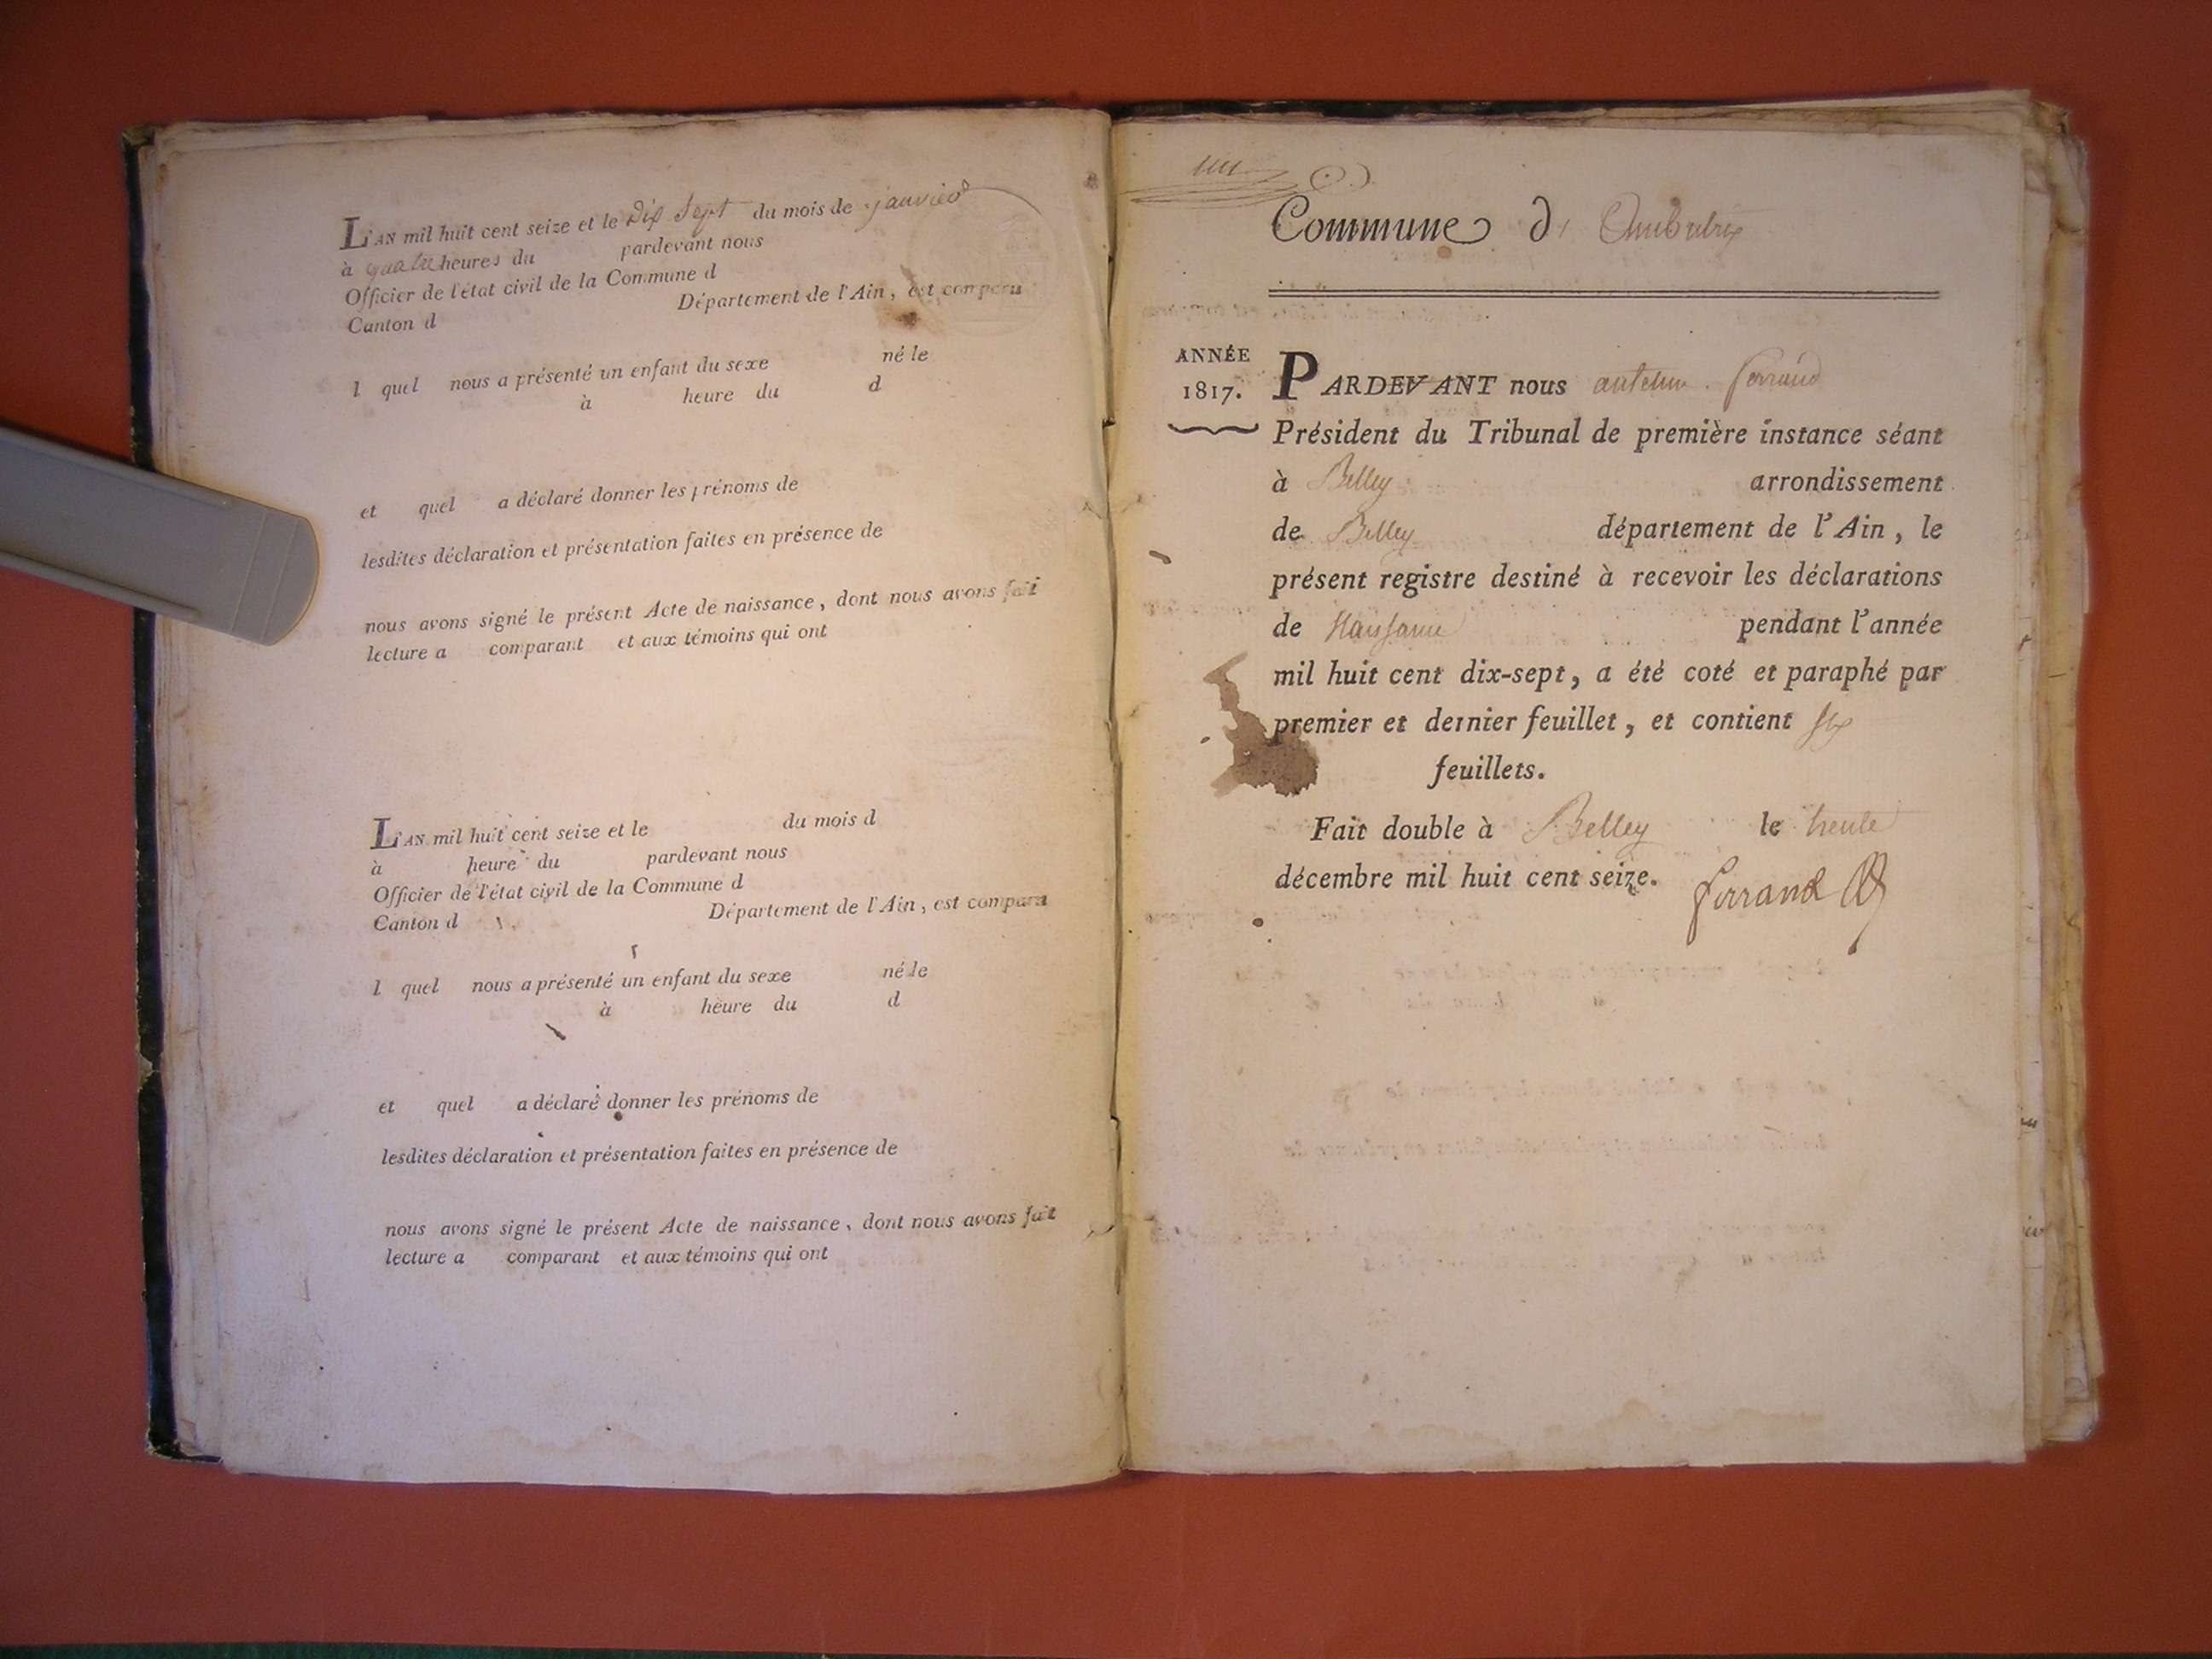 L'AN mil huit cent seize et le Dix Sept du mois de janvier
à quatre heures du pardevant nous
Officier de l'état civil de la Commune d
Canton d Département de l'Ain, est comparu
l quel nous a présenté un enfant du sexe né le
à heure du d
et quel a déclaré donner les prénoms de
lesdites déclaration et présentation faites en présence de
nous avons signé le présent Acte de naissance, dont nous avons fait
lecture a comparant et aux témoins qui ont
L'AN mil huit cent seize et le du mois d
à heure du pardevant nous
Officier de l'état civil de la Commune d
Canton d Département de l'Ain, est comparu
l quel nous a présenté un enfant du sexe né le
à heure du d
et quel a déclaré donner les prénoms de
lesdites déclaration et présentation faites en présence de
nous avons signé le présent Acte de naissance, dont nous avons fait
lecture a comparant et aux témoins qui ont
Commune d' Ambutrix
ANNÉE
1817.
PARDEVANT nous antelme ferrand
Président du Tribunal de première instance séant
à Belley arrondissement
de Belley département de l'Ain, le
présent registre destiné à recevoir les déclarations
de Naissance pendant l'année
mil huit cent dix-sept, a été coté et paraphé par
premier et dernier feuillet, et contient six
feuillets.
Fait double à Belley le trente
décembre mil huit cent seize.
ferrand